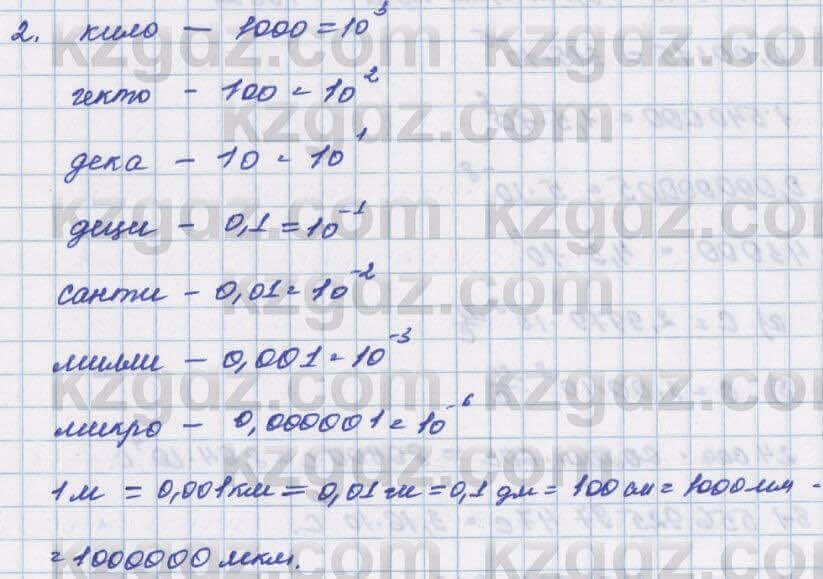 2. кило — 1000 = 10³
гекто - 100 = 10²
дека - 10 = 10¹
деци - 0,1 = 10⁻¹
санти - 0,01 = 10⁻²
милли - 0,001 = 10⁻³
микро - 0,000001 = 10⁻⁶
1 м = 0,001 км = 0,01 гм = 0,1 дм = 100 см = 1000 мм =
= 1000000 мкм.
kzgdz.com
kzgdz.com
kzgdz.com
kzgdz.com
kzgdz.com
kzgdz.com
kzgdz.com
kzgdz.com